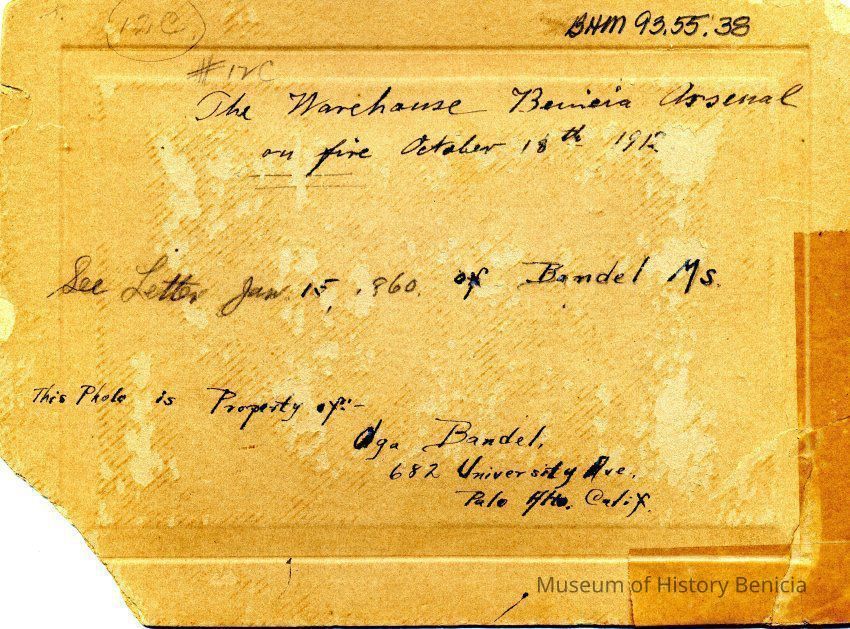 12C
BHM 93.55.38
#12C
The Warehouse Benicia Arsenal
on fire October 18th 1912
See Letter Jan. 15, 1860. of Bandel Ms.
This Photo is Property of:-
Olga Bandel,
682 University Ave.
Palo Alto. Calif.
Museum of History Benicia